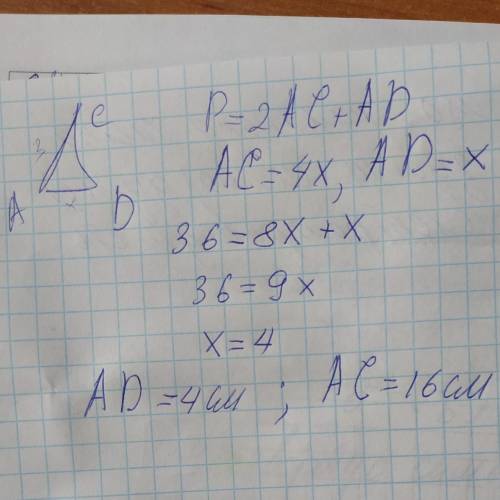 C
A
D
P=2AC+AD
AC=4x, AD=x
36=8x+x
36=9x
x=4
AD=4см; AC=16см